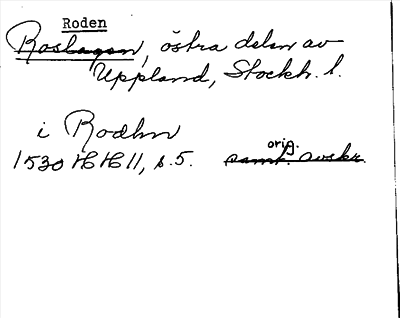 Roden
Roslagen, östra delen av
Uppland, Stockh. l.
i Rodhn
1530 HH 11, s. 5. orig.
samt. avskr.